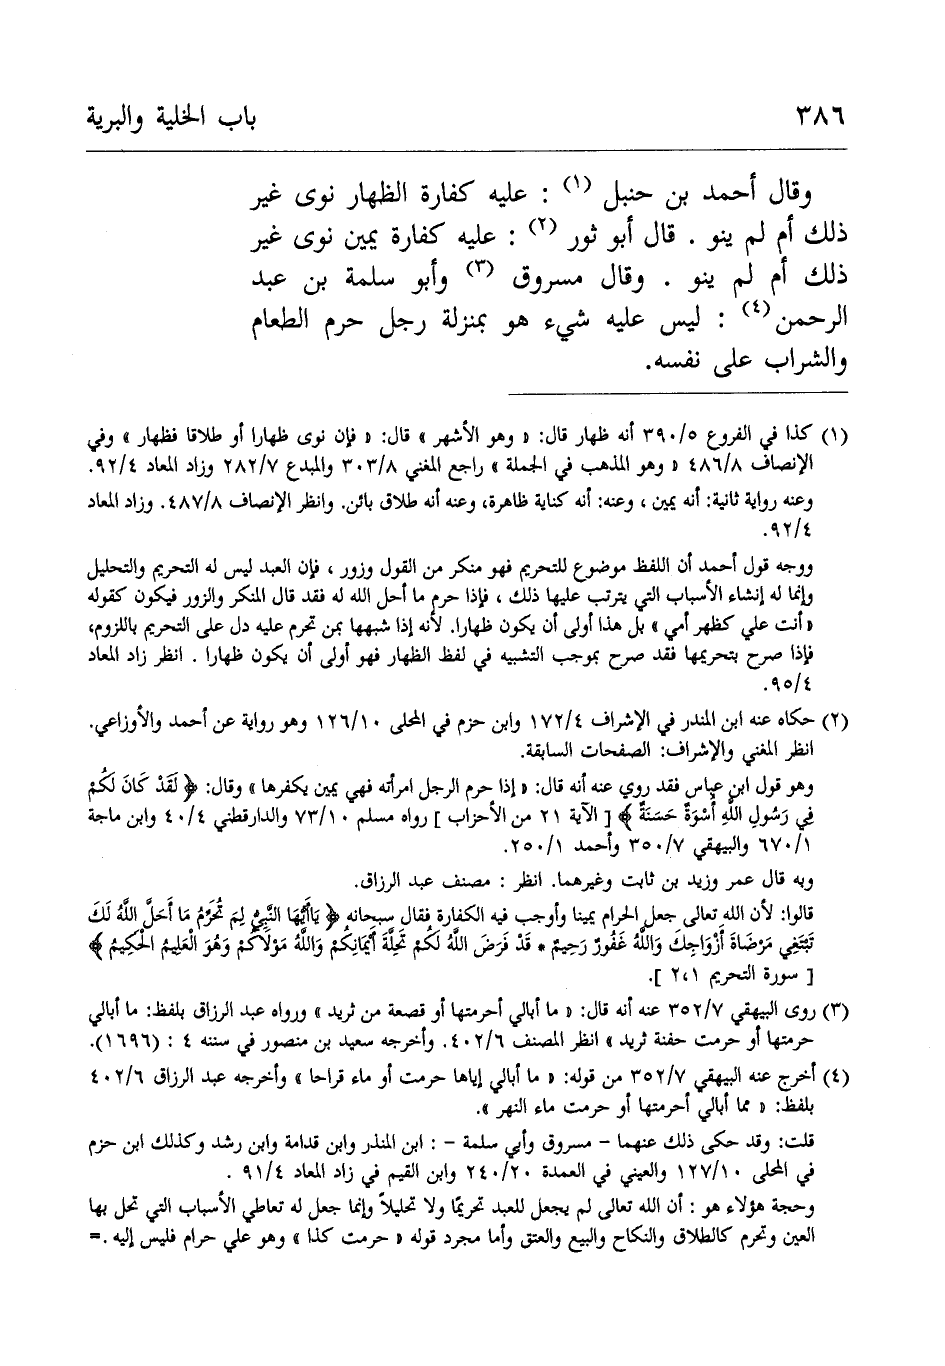 ٣٨٦
باب الخلية والبرية
وقال أحمد بن حنبل (١) : عليه كفارة الظهار نوى غير
ذلك أم لم ينو . قال أبو ثور (٢) : عليه كفارة يمين نوى غير
ذلك أم لم ينو . وقال مسروق (٣) وأبو سلمة بن عبد
الرحمن (٤) : ليس عليه شيء هو بمنزلة رجل حرم الطعام
والشراب على نفسه.
(١) كذا في الفروع ٣٩٠/٥ أنه ظهار قال: « وهو الأشهر » قال: « فإن نوى ظهارا أو طلاقا فظهار » وفي
الإنصاف ٤٨٦/٨ « وهو المذهب في الجملة » راجع المغني ٣٠٣/٨ والمبدع ٢٨٢/٧ وزاد المعاد ٩٢/٤.
وعنه رواية ثانية: أنه يمين ، وعنه: أنه كناية ظاهرة، وعنه أنه طلاق بائن. وانظر الإنصاف ٤٨٧/٨. وزاد المعاد
٩٢/٤.
ووجه قول أحمد أن اللفظ موضوع للتحريم فهو منكر من القول وزور ، فإن العبد ليس له التحريم والتحليل
وإنما له إنشاء الأسباب التي يترتب عليها ذلك ، فإذا حرم ما أحل الله له فقد قال المنكر والزور فيكون كقوله
« أنت علي كظهر أمي » بل هذا أولى أن يكون ظهارا. لأنه إذا شبهها بمن تحرم عليه دل على التحريم باللزوم،
فإذا صرح بتحريمها فقد صرح بموجب التشبيه في لفظ الظهار فهو أولى أن يكون ظهارا . انظر زاد المعاد
٩٥/٤.
(٢) حكاه عنه ابن المنذر في الإشراف ١٧٢/٤ وابن حزم في المحلى ١٢٦/١٠ وهو رواية عن أحمد والأوزاعي.
انظر المغني والإشراف: الصفحات السابقة.
وهو قول ابن عباس فقد روي عنه أنه قال: « إذا حرم الرجل امرأته فهي يمين يكفرها » وقال: ﴿ لَقَدْ كَانَ لَكُمْ
فِي رَسُولِ اللَّهِ أُسْوَةٌ حَسَنَةٌ ﴾ [ الآية ٢١ من الأحزاب ] رواه مسلم ٧٣/١٠ والدارقطني ٤٠/٤ وابن ماجة
٦٧٠/١ والبيهقي ٣٥٠/٧ وأحمد ٢٥٠/١.
وبه قال عمر وزيد بن ثابت وغيرهما. انظر : مصنف عبد الرزاق.
قالوا: لأن الله تعالى جعل الحرام يمينا وأوجب فيه الكفارة فقال سبحانه ﴿ يَاأَيُّهَا النَّبِيُّ لِمَ تُحَرِّمُ مَا أَحَلَّ اللَّهُ لَكَ
تَبْتَغِي مَرْضَاةَ أَزْوَاجِكَ وَاللَّهُ غَفُورٌ رَحِيمٌ * قَدْ فَرَضَ اللَّهُ لَكُمْ تَحِلَّةَ أَيْمَانِكُمْ وَاللَّهُ مَوْلَاكُمْ وَهُوَ الْعَلِيمُ الْحَكِيمُ ﴾
[ سورة التحريم ٢،١ ].
(٣) روى البيهقي ٣٥٢/٧ عنه أنه قال: « ما أبالي أحرمتها أو قصعة من ثريد » ورواه عبد الرزاق بلفظ: ما أبالي
حرمتها أو حرمت حفنة ثريد » انظر المصنف ٤٠٢/٦. وأخرجه سعيد بن منصور في سننه ٤ : (١٦٩٦).
(٤) أخرج عنه البيهقي ٣٥٢/٧ من قوله: « ما أبالي إياها حرمت أو ماء قراحا » وأخرجه عبد الرزاق ٤٠٢/٦
بلفظ: « مما أبالي أحرمتها أو حرمت ماء النهر ».
قلت: وقد حكى ذلك عنهما - مسروق وأبي سلمة - : ابن المنذر وابن قدامة وابن رشد وكذلك ابن حزم
في المحلى ١٢٧/١٠ والعيني في العمدة ٢٤٠/٢٠ وابن القيم في زاد المعاد ٩١/٤ .
وحجة هؤلاء هو : أن الله تعالى لم يجعل للعبد تحريمًا ولا تحليلاً وإنما جعل له تعاطي الأسباب التي تحل بها
العين وتحرم كالطلاق والنكاح والبيع والعتق وأما مجرد قوله « حرمت كذا » وهو علي حرام فليس إليه .=